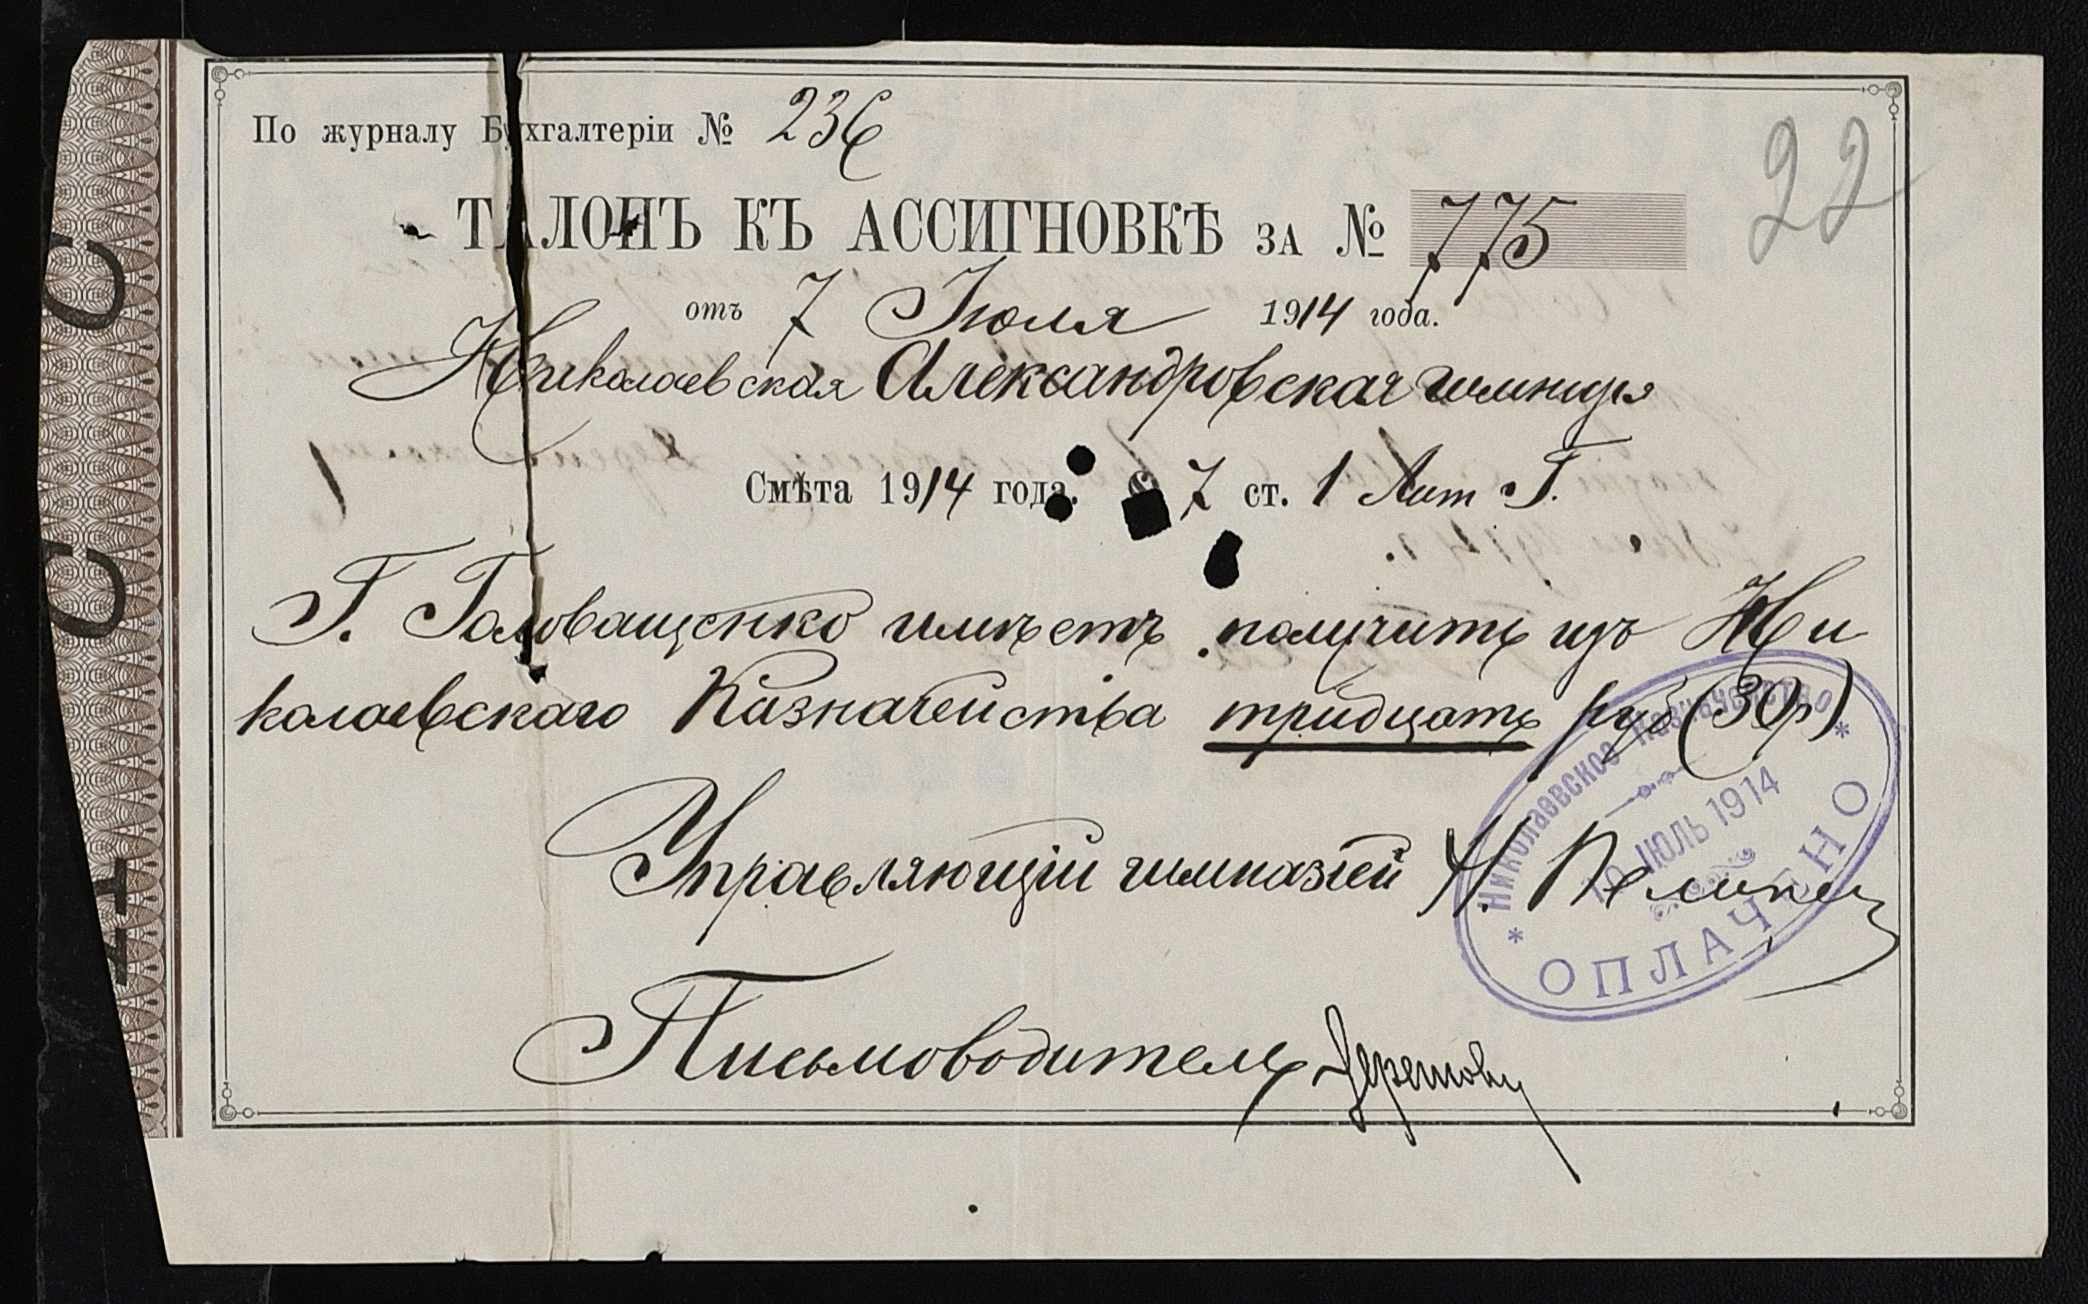 По журналу Бухгалтеріи № 236
22
ТАЛОНЪ КЪ АССИГНОВКѢ ЗА № 775
отъ 7 Іюля 1914 года.
Николаевская Александровская гимназія
Смѣта 1914 года. § 7 ст. 1 Лит Г.
Г. Головащенко имѣетъ получить изъ Ни
колаевскаго Казначейства тридцать руб (30р)
Управляющій гимназіей Н.
Письмоводитель
* Николаевское Казначейство *
10 ІЮЛЬ 1914
ОПЛАЧЕНО